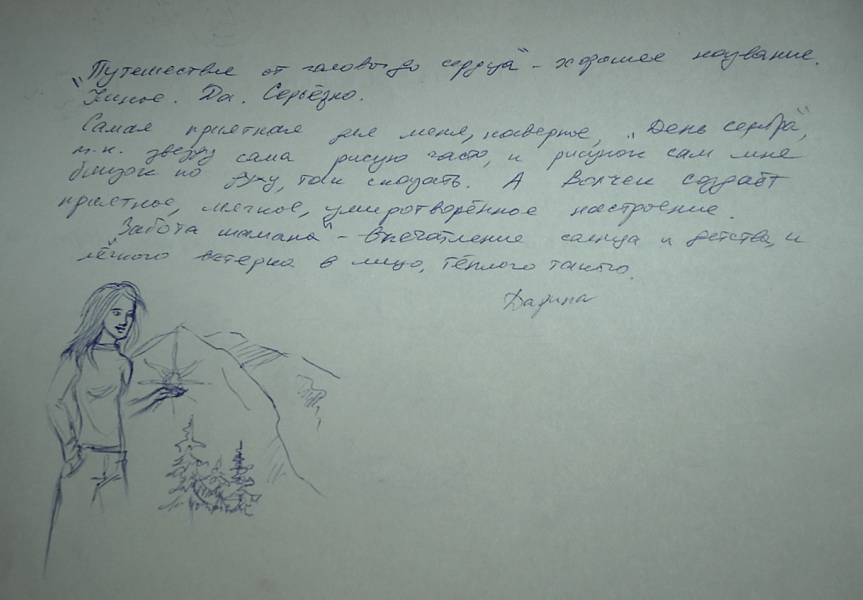 "Путешествие от головы до сердца" - хорошее название.
Умное. Да. Серьёзно.
Самая приятная для меня, наверное, "День серебра",
т.к. звезду сама рисую часто, и рисунок сам мне
близок по духу, так сказать. А Волчек создаёт
приятное, мягкое, умиротворённое настроение.
"Забота шамана" - впечатление солнца и детства, и
лёгкого ветерка в лицо, тёплого такого.
Дарина